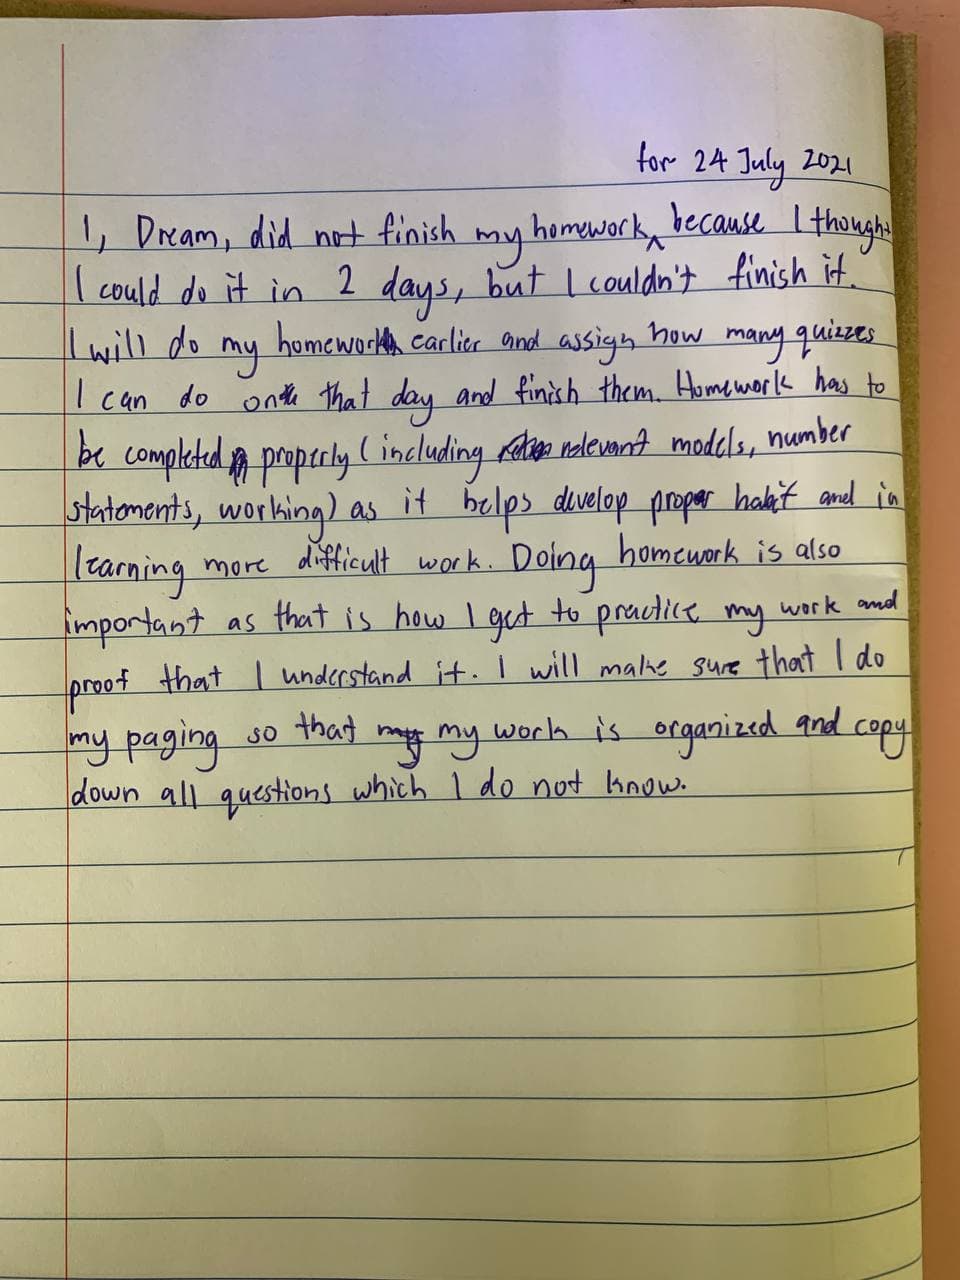 for 24 July 2021
I, Dream, did not finish my homework ^ because I thought
I could do it in 2 days, but I couldn't finish it.
I will do my homework earlier and assign how many quizzes
I can do on that day and finish them. Homework has to
be completed properly (including relevant models, number
statements, working) as it helps develop proper habit and in
learning more difficult work. Doing homework is also
important as that is how I get to practice my work and
proof that I understand it. I will make sure that I do
my paging so that my work is organized and copy
down all questions which I do not know.